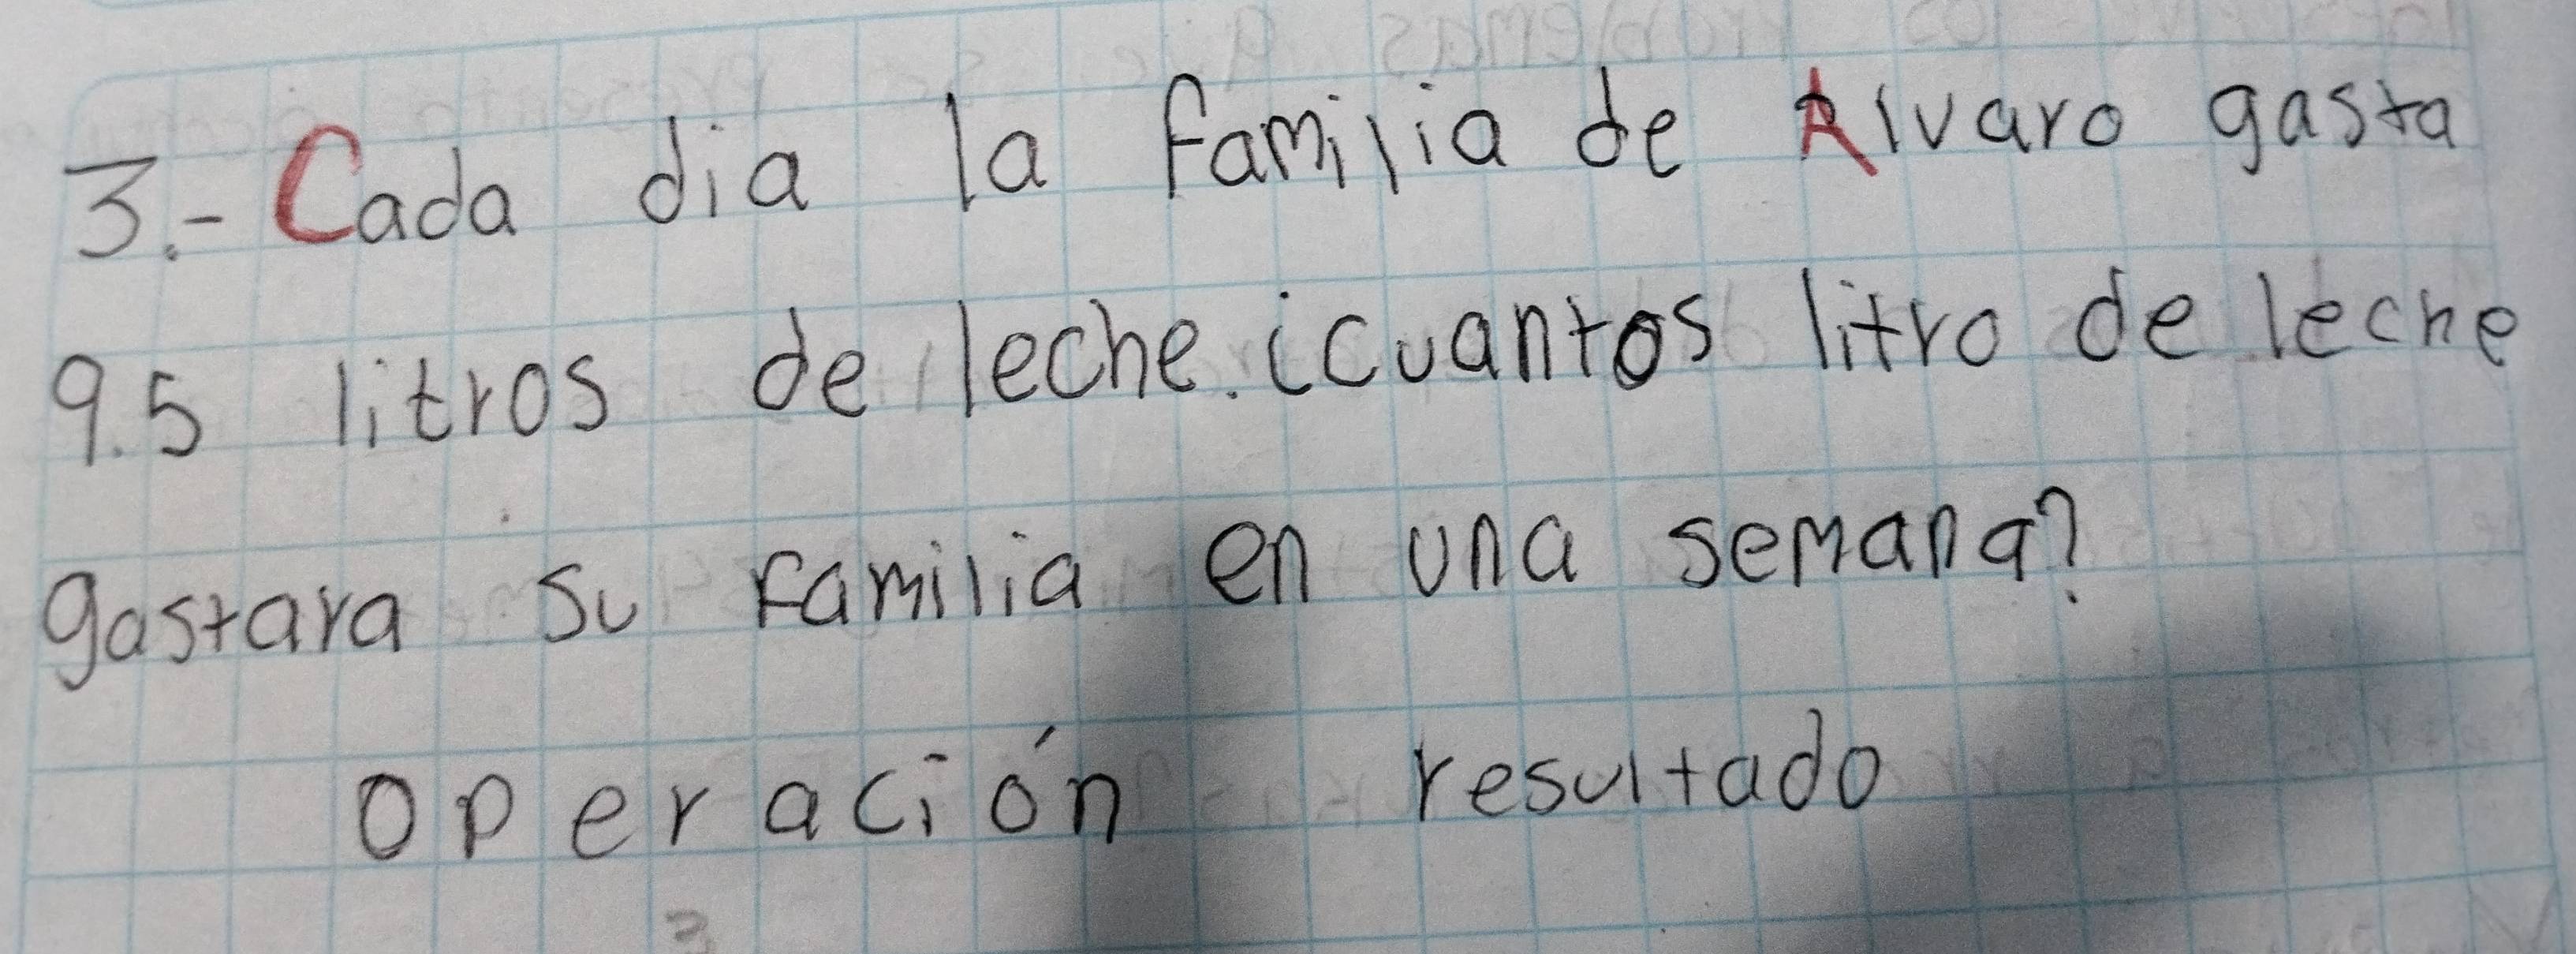 3.- Cada dia la familia de Alvaro gasta
9.5 litros de leche. ¿cuantos litro de leche
gastara su familia en una semana?
operación resultado
3